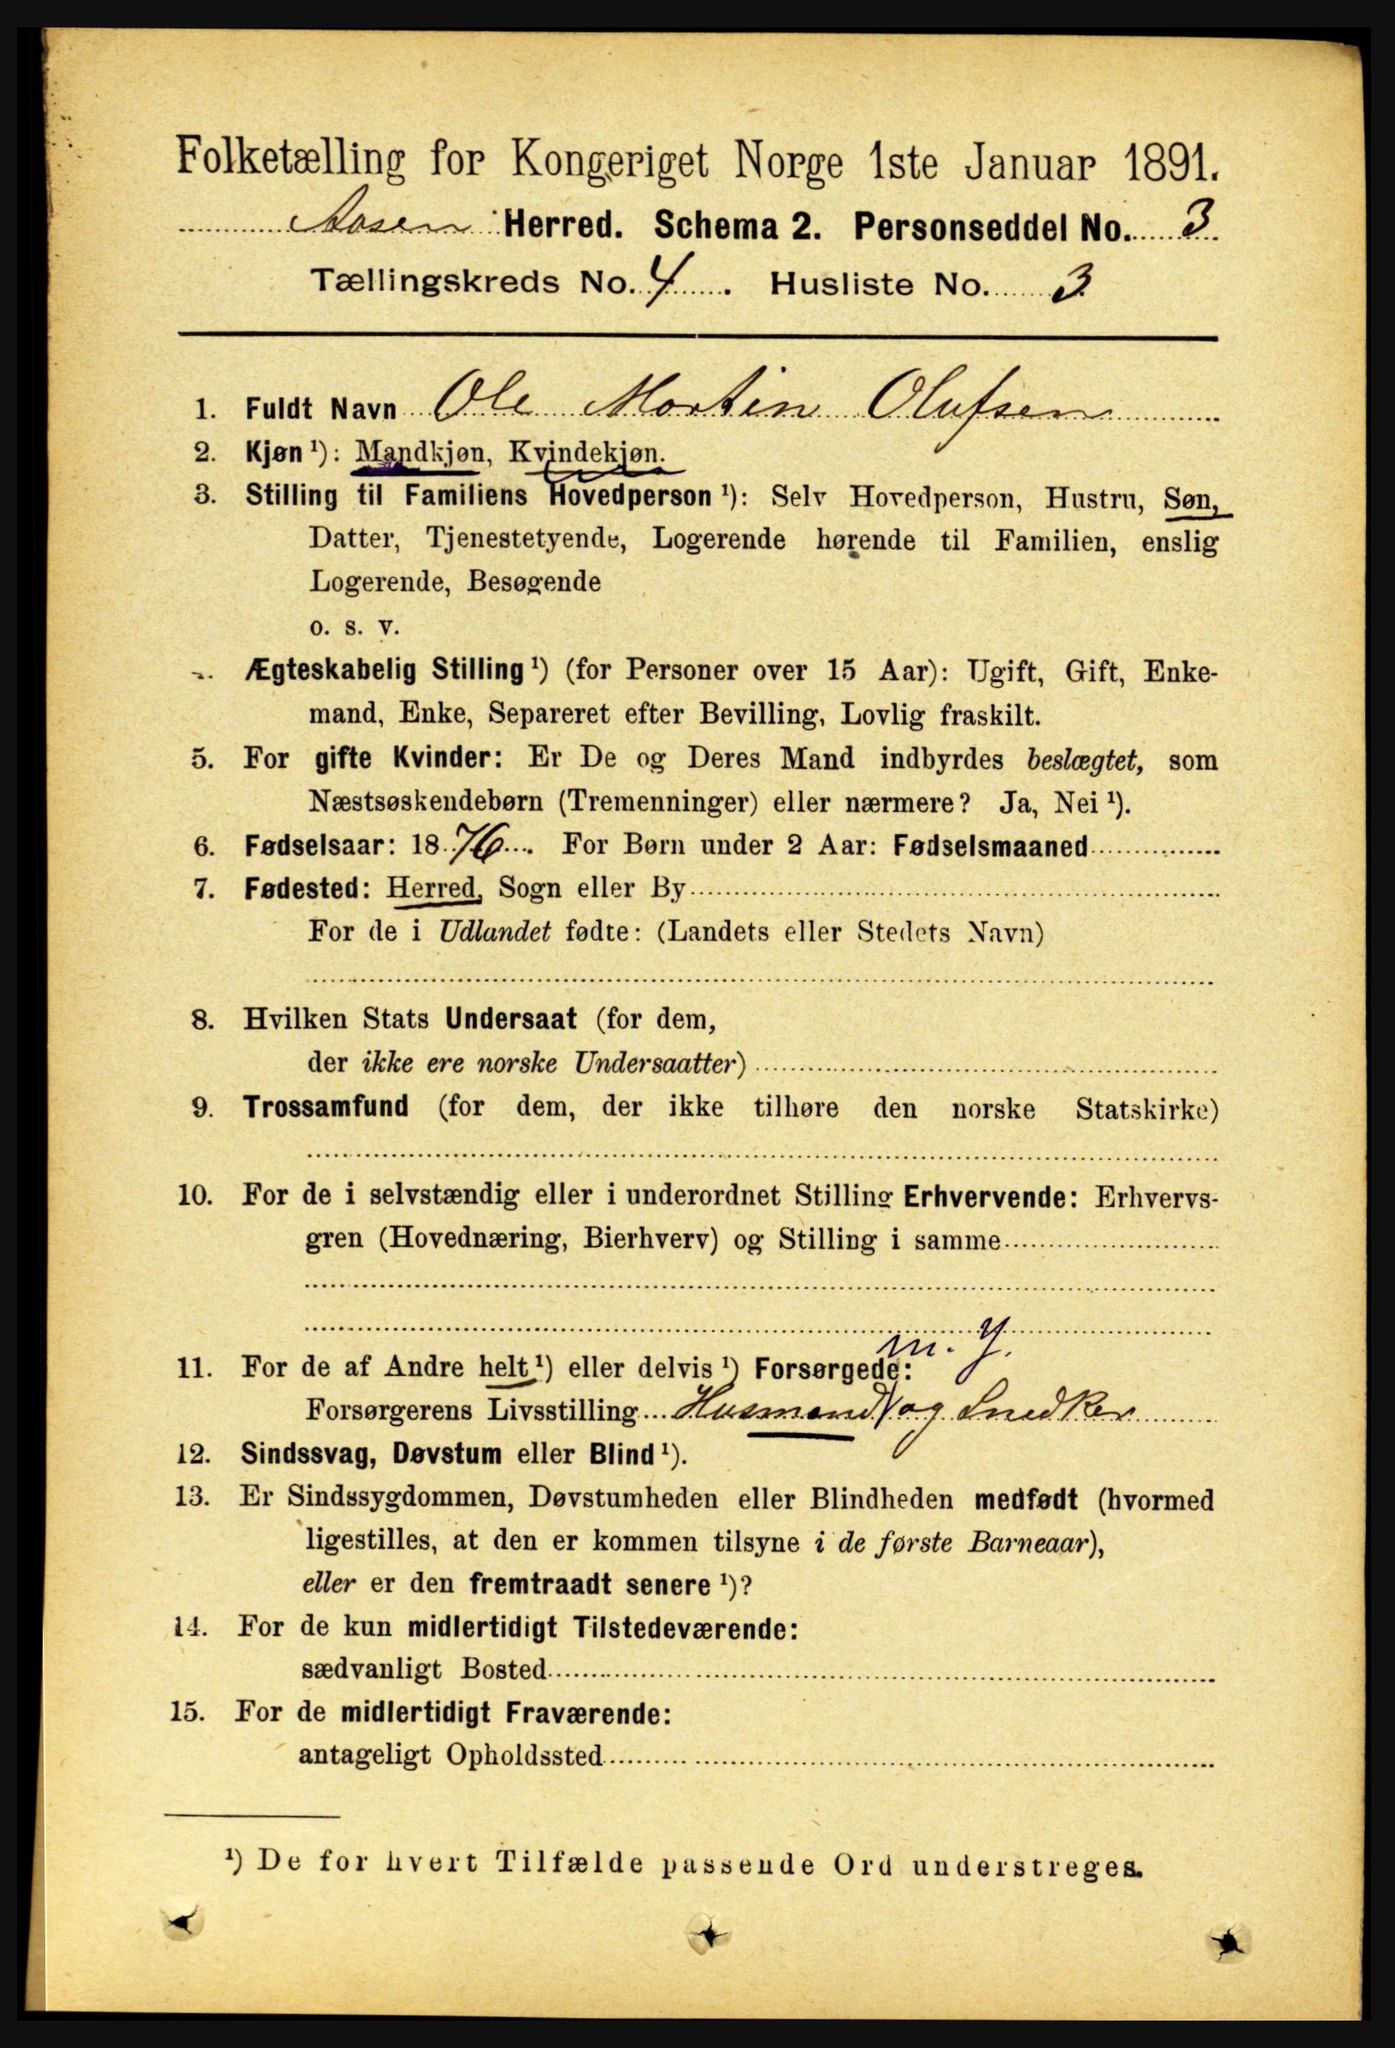 Folketælling for Kongeriget Norge 1ste Januar 1891.
Aasen Herred. Schema 2. Personseddel No. 3
Tællingskreds No. 4. Husliste No. 3
1. Fuldt Navn Ole Martin Olufsen
2. Kjøn ¹): Mandkjøn, Kvindekjøn.
3. Stilling til Familiens Hovedperson ¹): Selv Hovedperson, Hustru, Søn,
Datter, Tjenestetyende, Logerende hørende til Familien, enslig
Logerende, Besøgende
o. s. v.
Ægteskabelig Stilling ¹) (for Personer over 15 Aar): Ugift, Gift, Enke-
mand, Enke, Separeret efter Bevilling, Lovlig fraskilt.
5. For gifte Kvinder: Er De og Deres Mand indbyrdes beslægtet, som
Næstsøskendebørn (Tremenninger) eller nærmere? Ja, Nei ¹).
6. Fødselsaar: 1876. For Børn under 2 Aar: Fødselsmaaned
7. Fødested: Herred, Sogn eller By
For de i Udlandet fødte: (Landets eller Stedets Navn)
8. Hvilken Stats Undersaat (for dem,
der ikke ere norske Undersaatter)
9. Trossamfund (for dem, der ikke tilhøre den norske Statskirke)
10. For de i selvstændig eller i underordnet Stilling Erhvervende: Erhvervs-
gren (Hovednæring, Bierhverv) og Stilling i samme
m. J.
11. For de af Andre helt ¹) eller delvis ¹) Forsørgede:
Forsørgerens Livsstilling Husmand og Snedker
12. Sindssvag, Døvstum eller Blind ¹).
13. Er Sindssygdommen, Døvstumheden eller Blindheden medfødt (hvormed
ligestilles, at den er kommen tilsyne i de første Barneaar),
eller er den fremtraadt senere ¹)?
14. For de kun midlertidigt Tilstedeværende:
sædvanligt Bosted
15. For de midlertidigt Fraværende:
antageligt Opholdssted
¹) De for hvert Tilfælde passende Ord understreges.